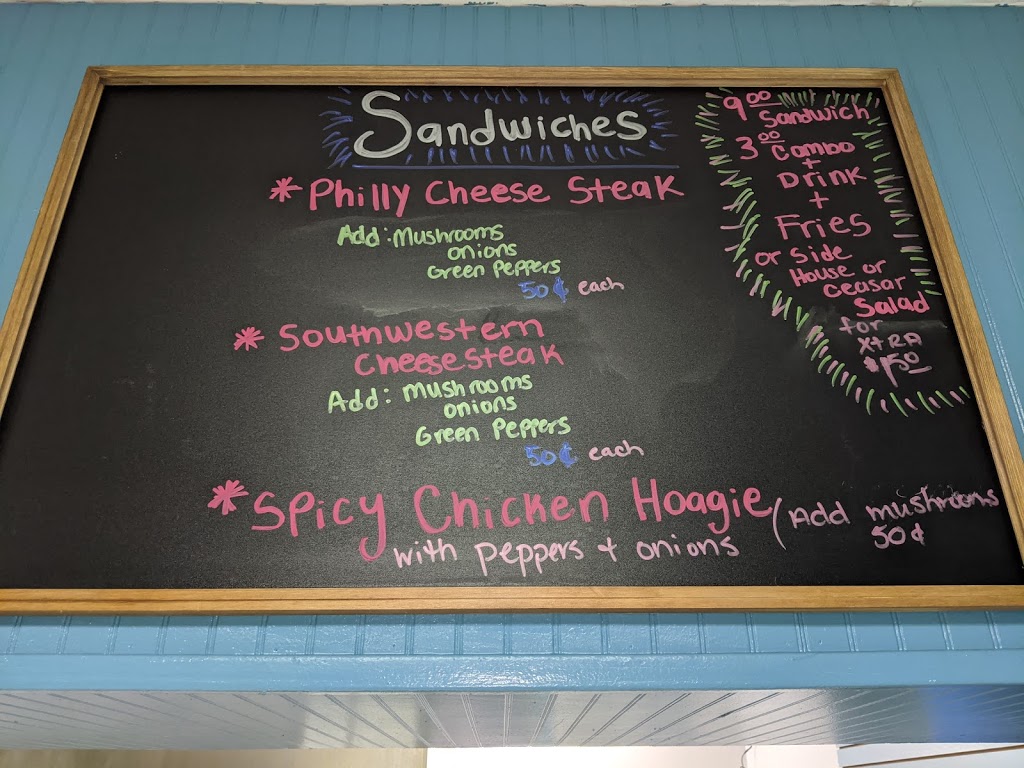 Sandwiches
* Philly Cheese Steak
Add: Mushrooms
onions
Green Peppers
50¢ each
* Southwestern
Cheesesteak
Add: mushrooms
onions
Green Peppers
50¢ each
* Spicy Chicken Hoagie
with peppers + onions
(Add mushrooms
50¢
9 00 Sandwich
3 00 Combo
+
Drink
+
Fries
or side
House or
ceasar
Salad
for
XtRA
$1 50